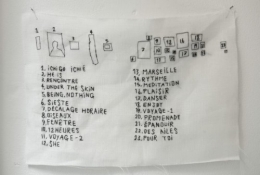 1. ICHI GO ICHIE
2. HE IS
3. RENCONTRE
4. UNDER THE SKIN
5. BEING, NOTHING
6. SIESTE
7. DÉCALAGE HORAIRE
8. OISEAUX
9. FENÊTRE
10. 12 HEURES
11. VOYAGE-2
12. SHE
13. MARSEILLE
14. RYTHME
15. MEDITATION
16. PLAISIR
17. DANSER
18. ENZOT
19. VOYAGE-2
20. PROMENADE
21. ÉPANOUIR
22. DES AILES
23. POUR TOI